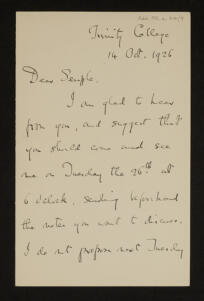 Trinity College
14 Oct. 1926
Dear Semple,
I am glad to hear
from you, and suggest that
you should come and see
me on Tuesday the 26th at
6 o'clock, sending beforehand
the notes you want to discuss.
I do not propose next Tuesday